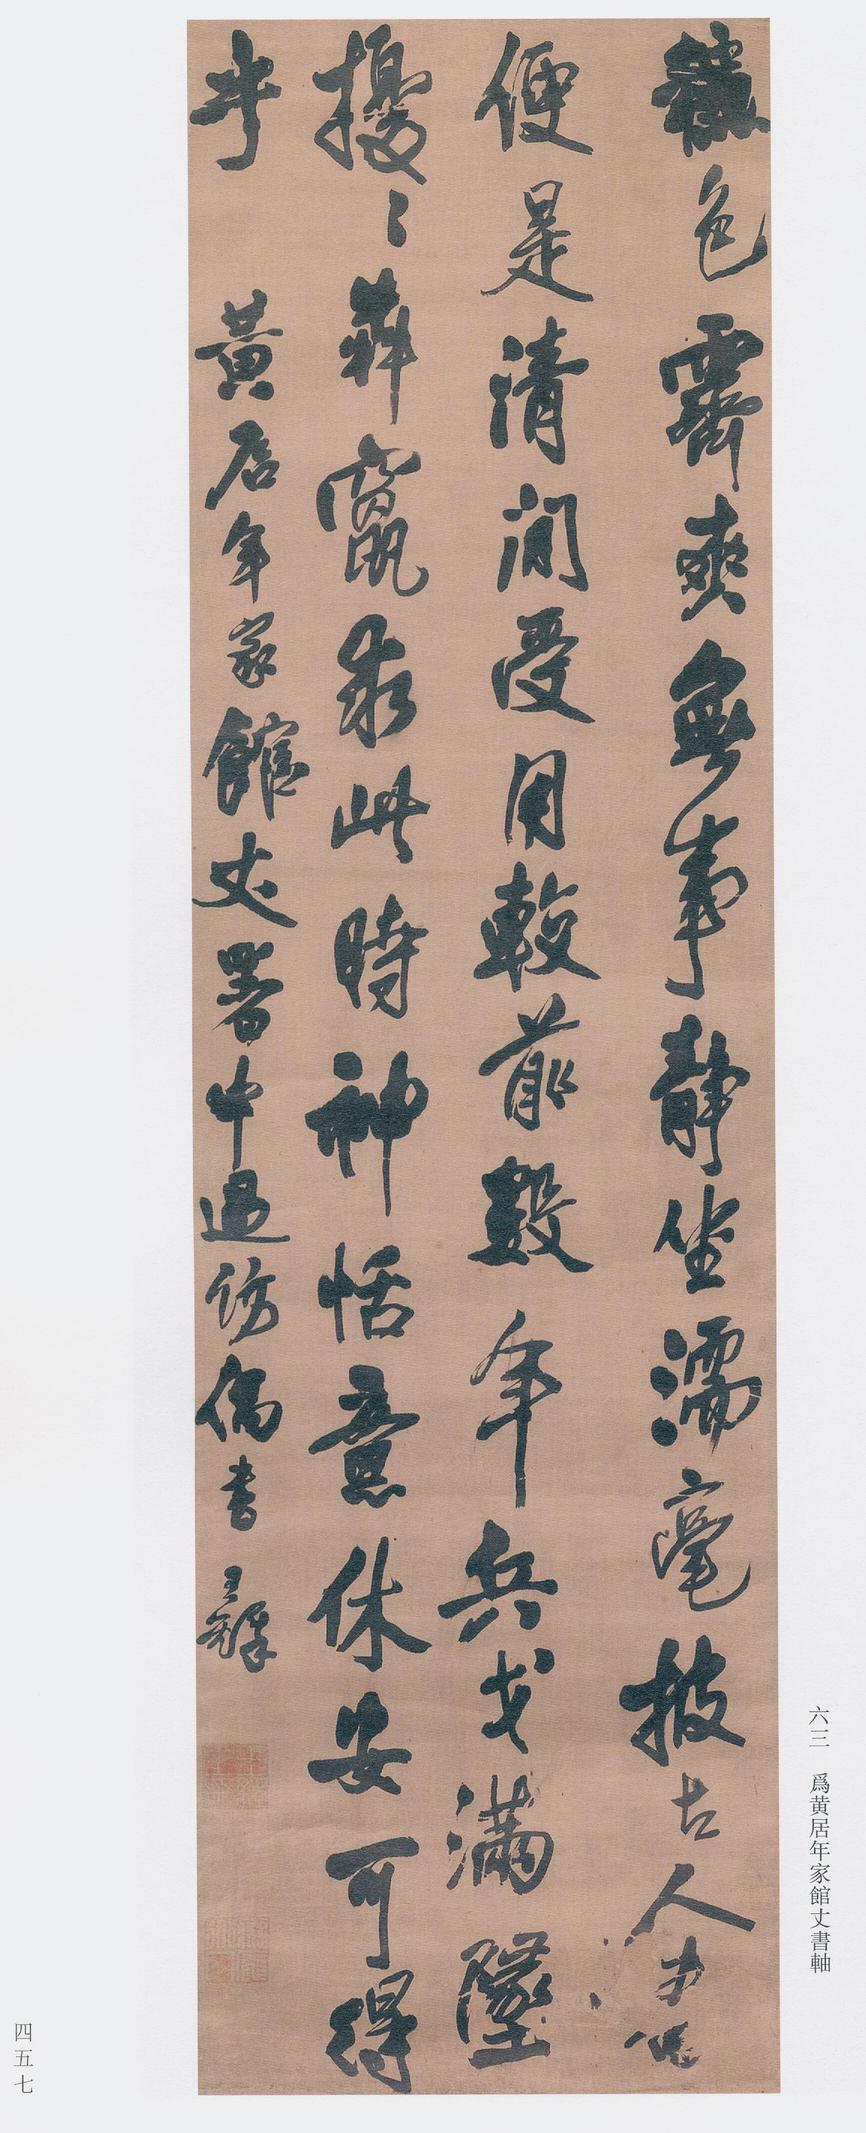 龝色霽爽無事靜坐濡毫披古人
便是清閒受用較前數年兵戈滿墬
擾〻犇竄求此時神恬意休安可得
乎 黃居年家館丈署中過訪偶書 王鐸
六三 爲黄居年家館丈書軸
四五七